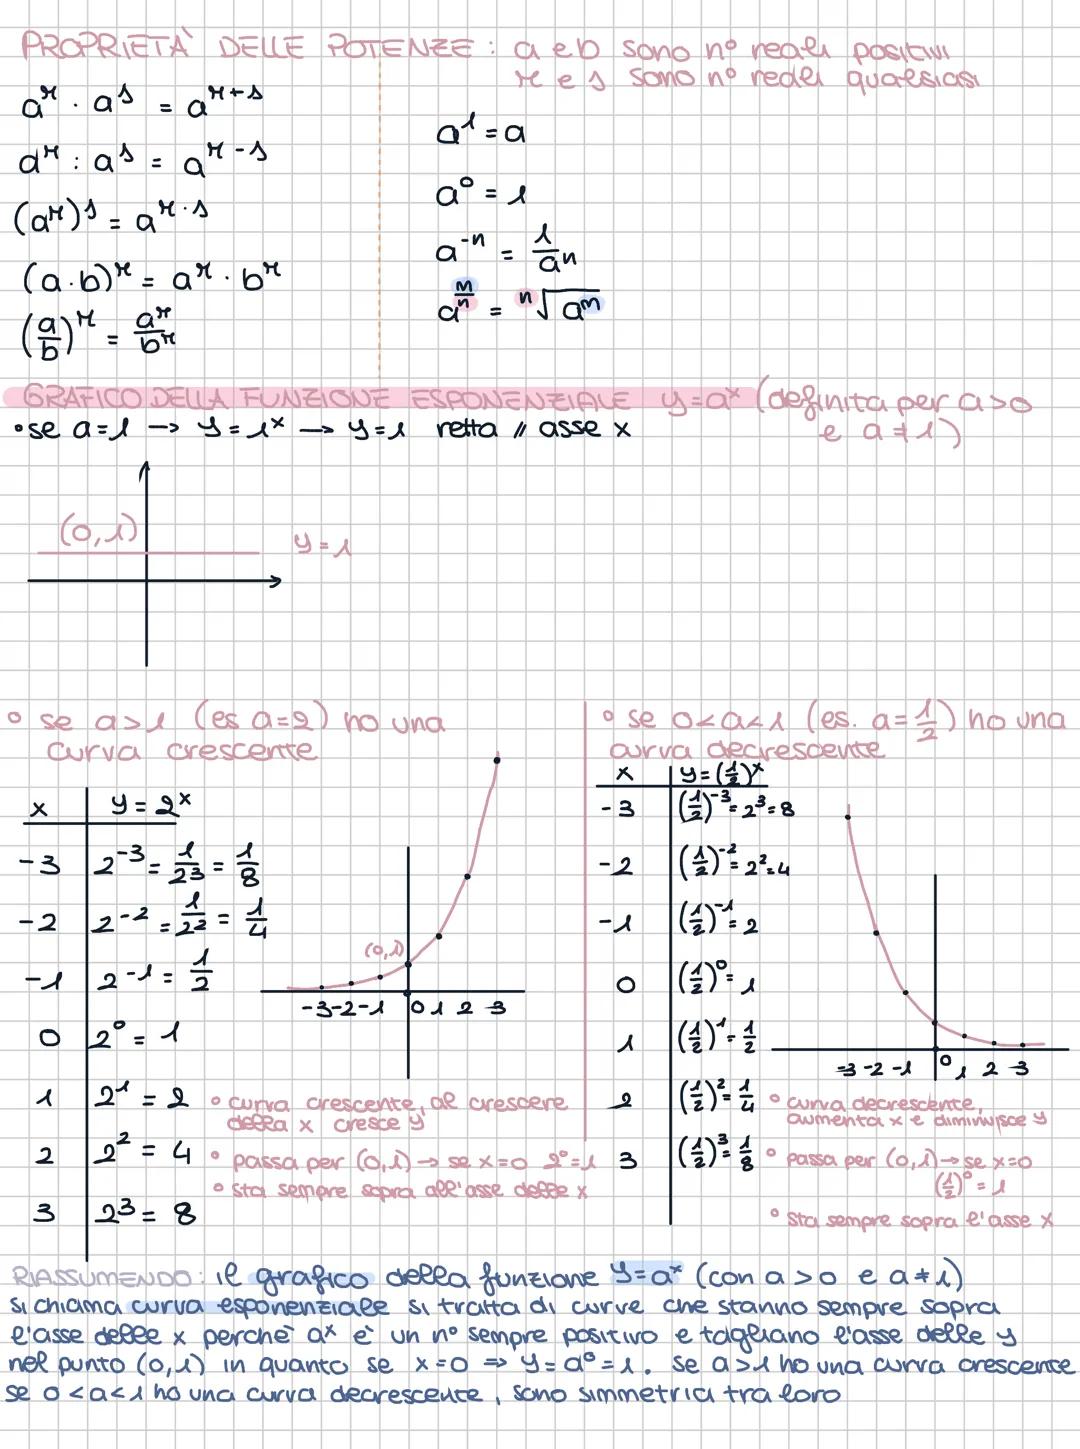 PROPRIETÀ DELLE POTENZE: a e b sono n° reali positivi
r e s sono n° reali qualsiasi
a^r · a^s = a^(r+s)
a^r : a^s = a^(r-s)
(a^r)^s = a^(r·s)
(a·b)^r = a^r · b^r
(a/b)^r = a^r/b^r
a^1 = a
a^0 = 1
a^(-n) = 1/a^n
a^(m/n) = n√a^m
GRAFICO DELLA FUNZIONE ESPONENZIALE y=a^x (definita per a>0
e a≠1)
•se a=1 -> y=1^x -> y=1 retta // asse x
(0,1)
y=1
° se a>1 (es a=2) ho una
curva crescente
x y=2^x
-3 2^-3 = 1/2^3 = 1/8
-2 2^-2 = 1/2^2 = 1/4
-1 2^-1 = 1/2
0 2^0 = 1
1 2^1 = 2
2 2^2 = 4
3 2^3 = 8
(0,1)
-3 -2 -1 0 1 2 3
° curva crescente, al crescere
della x cresce y
° passa per (0,1) → se x=0 2^0=1
° sta sempre sopra all'asse delle x
° se 0<a<1 (es. a=1/2) ho una
curva decrescente
x y=(1/2)^x
-3 (1/2)^-3 = 2^3 = 8
-2 (1/2)^-2 = 2^2 = 4
-1 (1/2)^-1 = 2
0 (1/2)^0 = 1
1 (1/2)^1 = 1/2
2 (1/2)^2 = 1/4
3 (1/2)^3 = 1/8
-3 -2 -1 0 1 2 3
° curva decrescente,
aumenta x e diminuisce y
° passa per (0,1) → se x=0
(1/2)^0 = 1
° sta sempre sopra l'asse x
RIASSUMENDO: il grafico della funzione y=a^x (con a>0 e a≠1)
si chiama curva esponenziale si tratta di curve che stanno sempre sopra
l'asse delle x perchè a^x è un n° sempre positivo e tagliano l'asse delle y
nel punto (0,1) in quanto se x=0 => y=a^0=1. se a>1 ho una curva crescente
se 0<a<1 ho una curva decrescente, sono simmetria tra loro